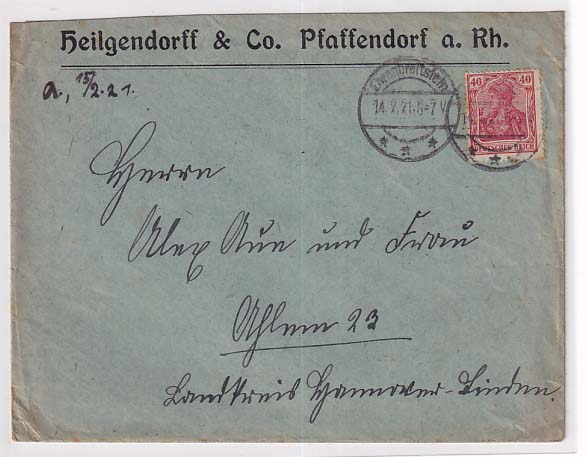 Heilgendorff & Co. Pfaffendorf a. Rh.
a, 15/2.21.
Ehrenbreitstein
14.2.21.6-7V
40 40
DEUTSCHES REICH
Herrn
Alex Aue und Frau
Ahlem 23
Landkreis Hannover-Linden.